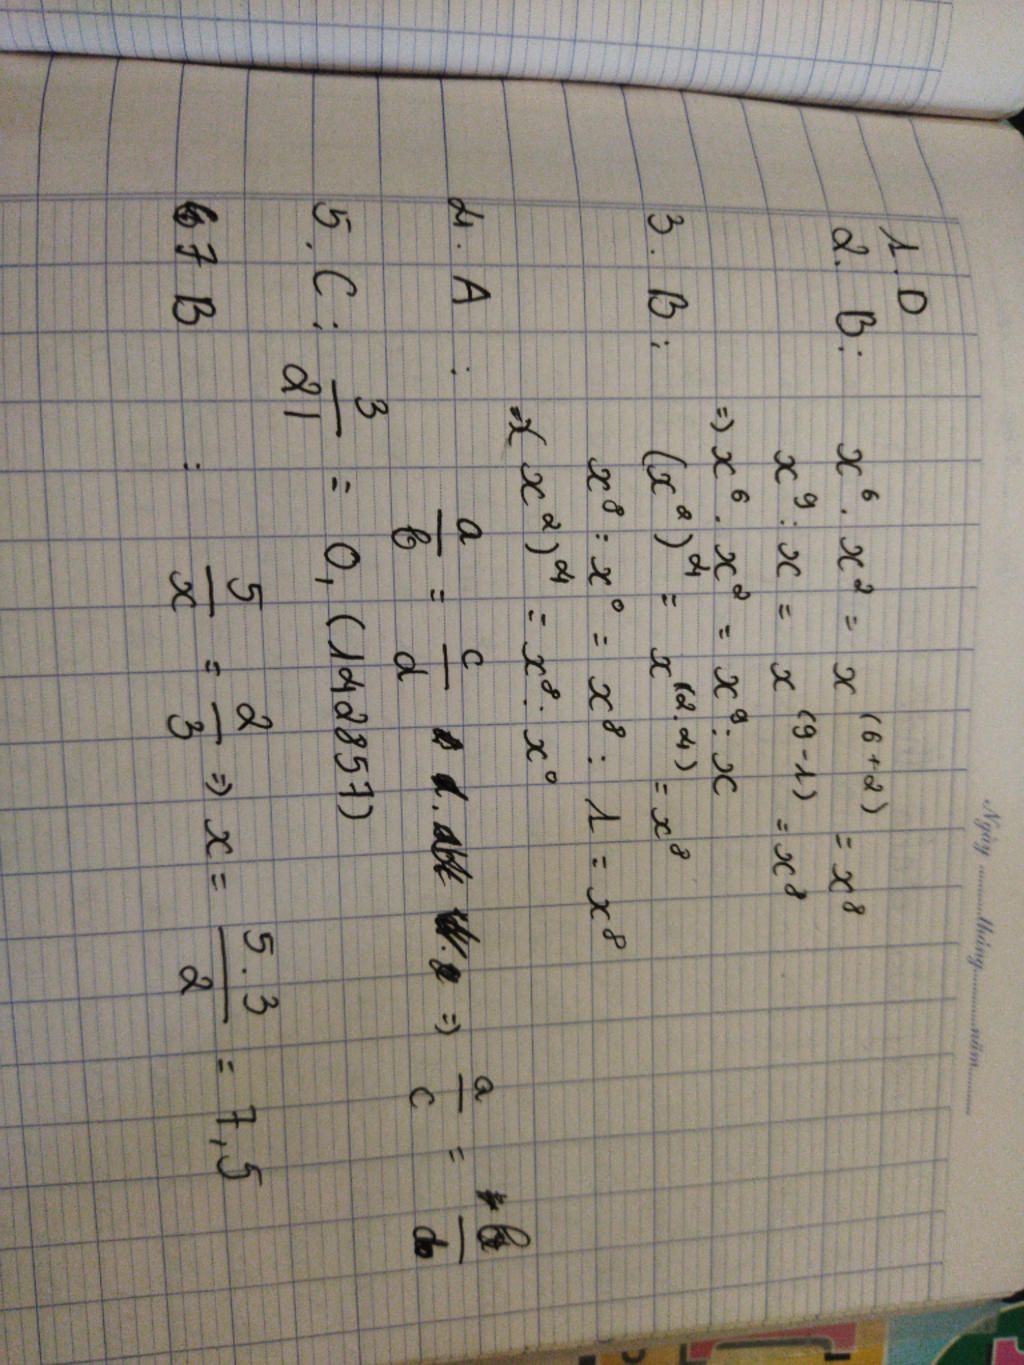 Ngày ........tháng........năm........
1. D
2. B: x⁶ . x² = x⁽⁶⁺²⁾ = x⁸
x⁹ : x = x⁽⁹⁻¹⁾ = x⁸
=> x⁶ . x² = x⁹ : x
3. B: (x²)⁴ = x⁽²·⁴⁾ = x⁸
x⁸ : x⁰ = x⁸ : 1 = x⁸
=> (x²)⁴ = x⁸ : x⁰
4. A : a/b = c/d => a/c = b/d
5. C: 3/21 = 0,(142857)
7 B : 5/x = 2/3 => x = 5.3/2 = 7,5